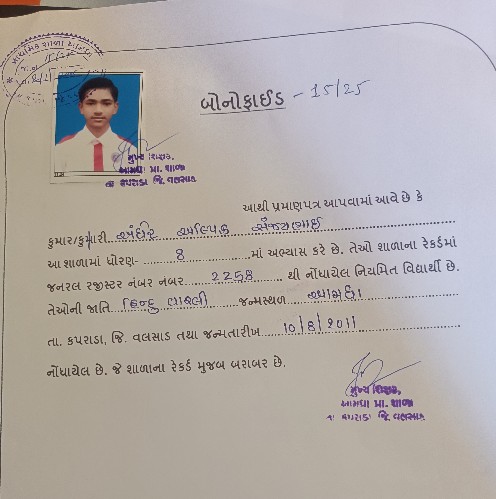 બોનોફાઈડ - 15/25
મુખ્ય શિક્ષક,
આમધા પ્રા. શાળા
તા. કપરાડા જિ. વલસાડ
આથી પ્રમાણપત્ર આપવામાં આવે છે કે
કુમાર/કુમારી
આ શાળામાં ધોરણ- 8 માં અભ્યાસ કરે છે. તેઓ શાળાના રેકર્ડમાં
જનરલ રજીસ્ટર નંબર નબર 2258 થી નોંધાયેલ નિયમિત વિદ્યાર્થી છે.
તેઓની જાતિ હિન્દુ વારલી જન્મસ્થળ આમધા
તા. કપરાડા, જિ. વલસાડ તથા જન્મતારીખ 10/8/2011
નોંધાયેલ છે. જે શાળાના રેકર્ડ મુજબ બરાબર છે.
મુખ્ય શિક્ષક,
આમધા પ્રા. શાળા
તા કપરાડા જિ. વલસાડ